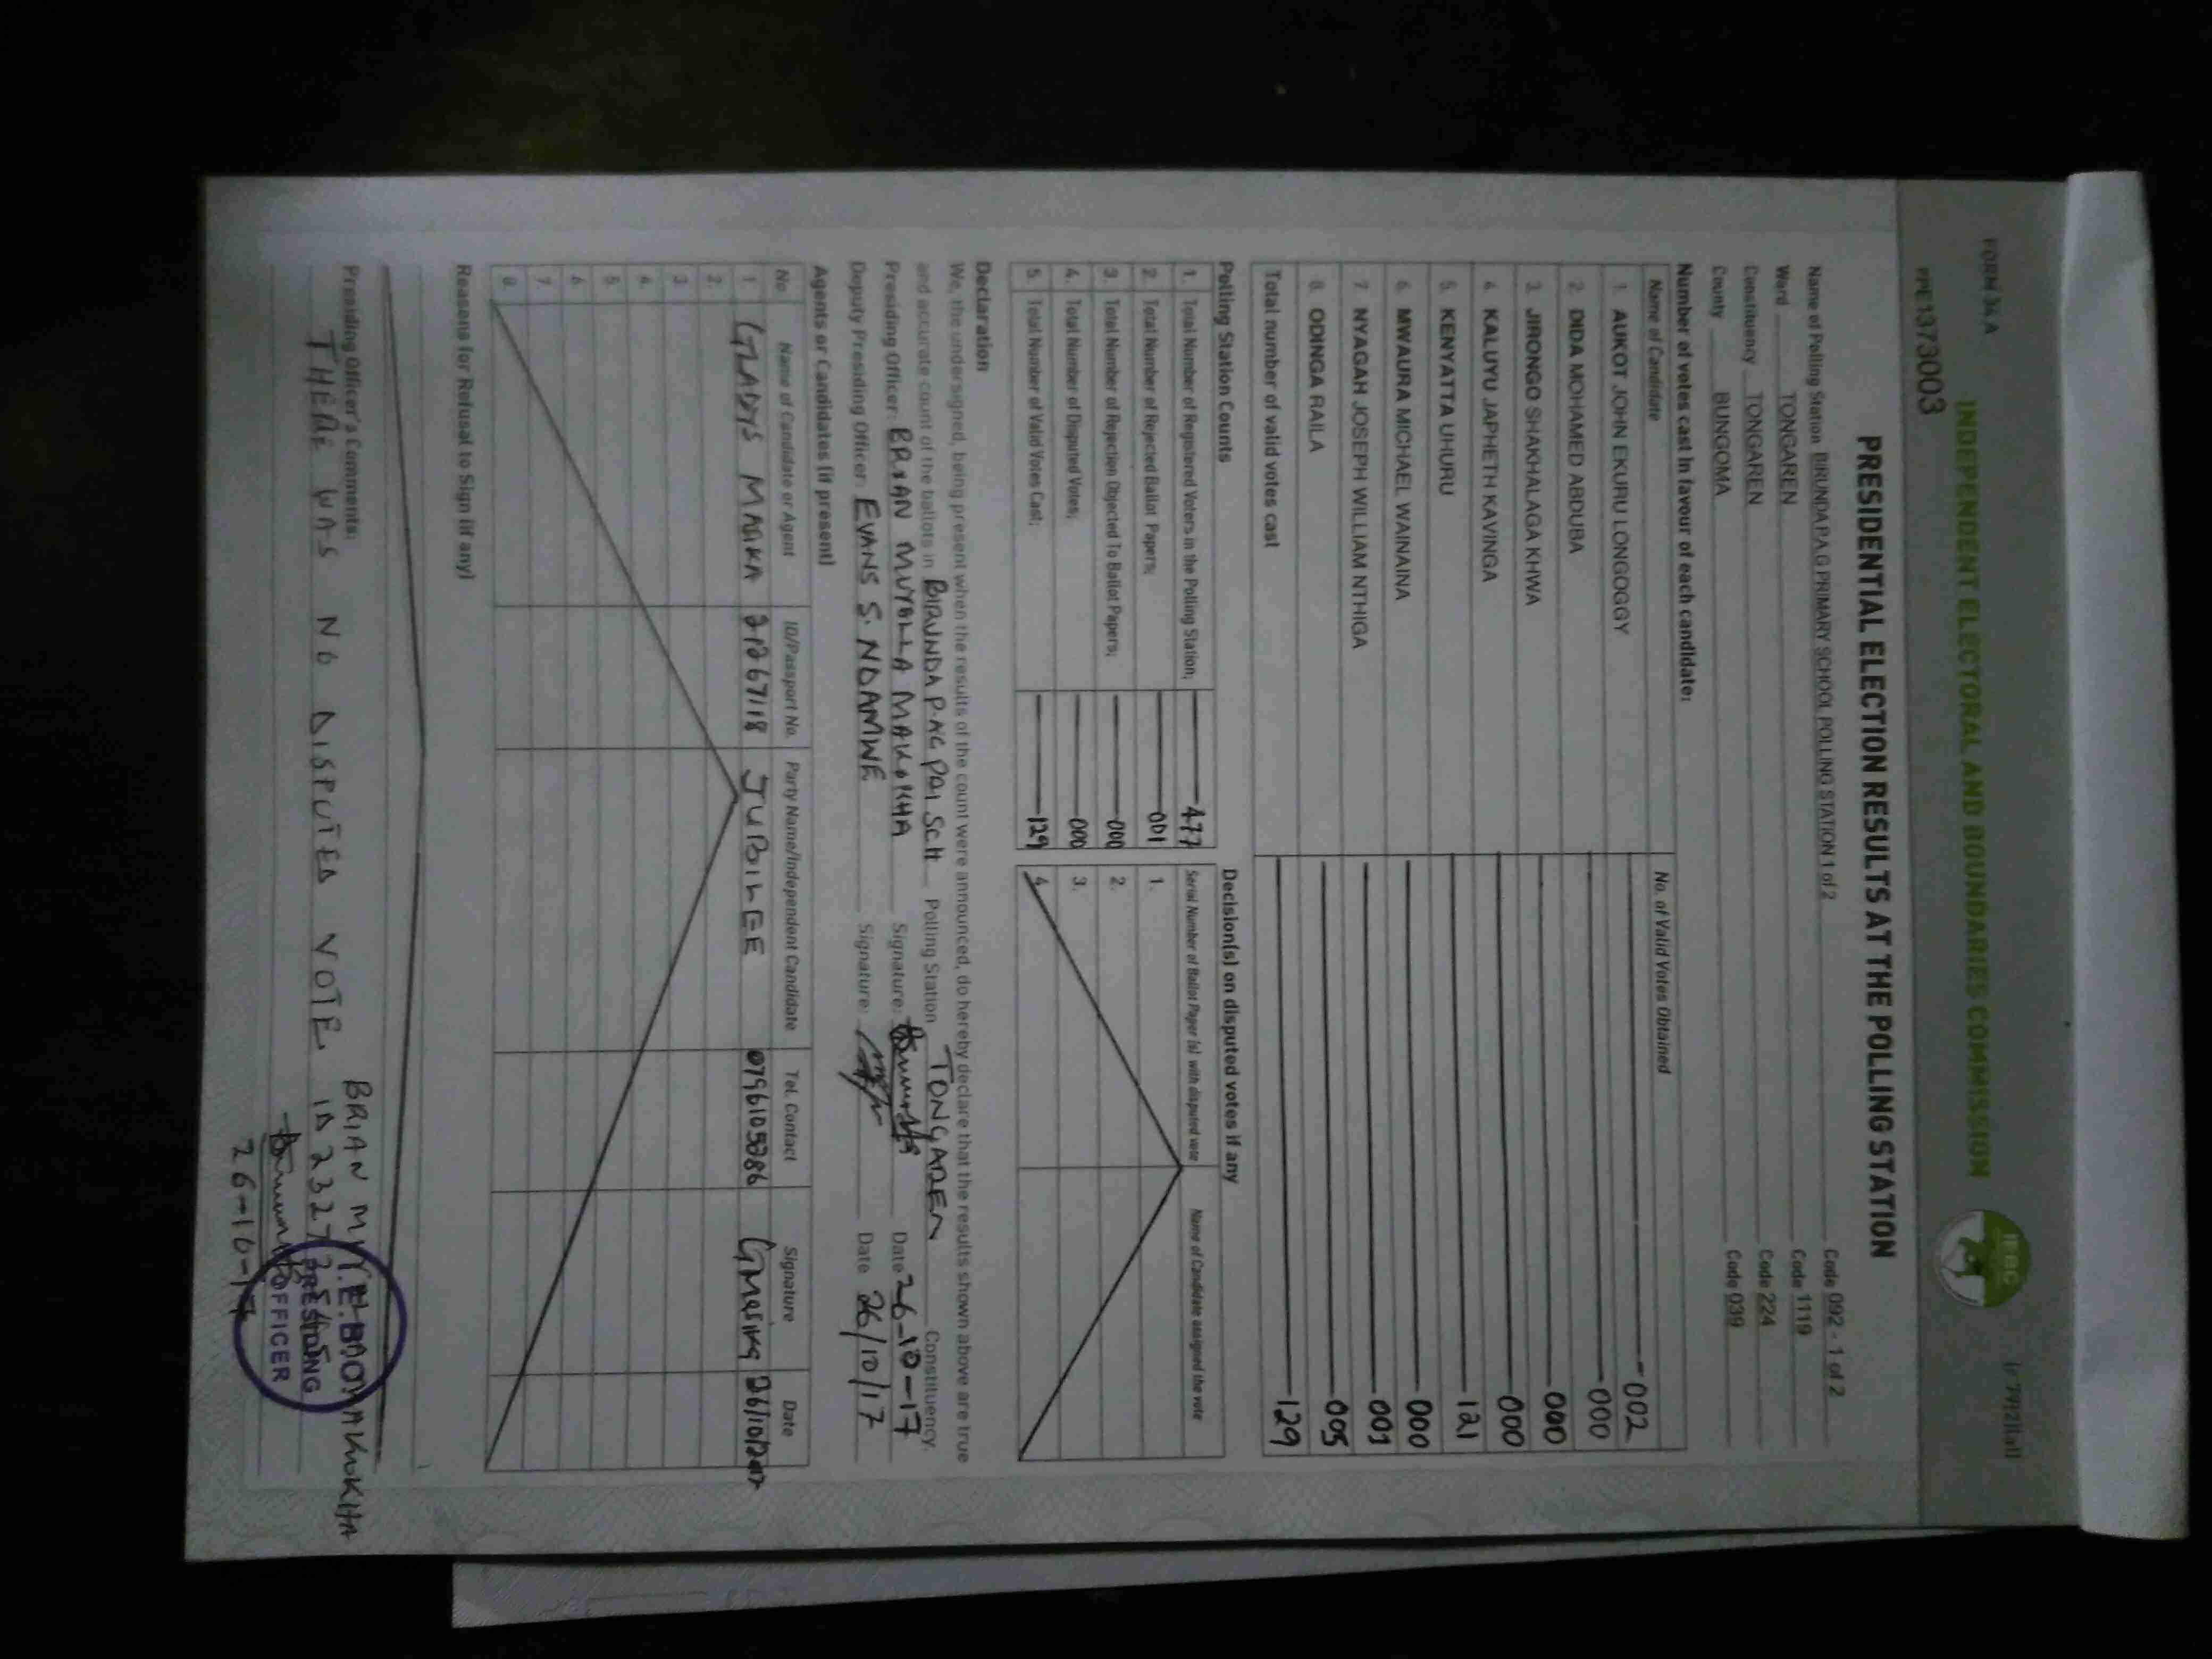 FORM 34 A
INDEPENDENT ELECTORAL AND BOUNDARIES COMMISSION
IEBC
PPE1373003
PRESIDENTIAL ELECTION RESULTS AT THE POLLING STATION
Name of Polling Station BIRUNDA P.A.G PRIMARY SCHOOL POLLING STATION 1 of 2 Code 092 - 1 of 2
Ward TONGAREN Code 1119
Constituency TONGAREN Code 224
County BUNGOMA Code 039
Number of votes cast in favour of each candidate:
Name of Candidate No. of Valid Votes Obtained
1. AUKOT JOHN EKURU LONGOGGY 002
2. DIDA MOHAMED ABDUBA 000
3. JIRONGO SHAKHALAGA KHWA 000
4. KALUYU JAPHETH KAVINGA 000
5. KENYATTA UHURU 121
6. MWAURA MICHAEL WAINAINA 000
7. NYAGAH JOSEPH WILLIAM NTHIGA 001
8. ODINGA RAILA 005
Total number of valid votes cast 129
Polling Station Counts
1. Total Number of Registered Voters in the Polling Station; 477
2. Total Number of Rejected Ballot Papers; 001
3. Total Number of Rejection Objected To Ballot Papers; 000
4. Total Number of Disputed Votes; 000
5. Total Number of Valid Votes Cast; 129
Decision(s) on disputed votes if any
Serial Number of Ballot Paper (s) with disputed vote Name of Candidate assigned the vote
1.
2.
3.
4.
Declaration
We, the undersigned, being present when the results of the count were announced, do hereby declare that the results shown above are true
and accurate count of the ballots in BIRUNDA P.AG PRI SCH Polling Station TONGAREN Constituency.
Presiding Officer: BRIAN MUYALLA MAKOKHA Signature: Date 26-10-17
Deputy Presiding Officer: EVANS S. NDAMWE Signature: Date 26/10/17
Agents or Candidates (if present)
No. Name of Candidate or Agent ID/Passport No. Party Name/Independent Candidate Tel. Contact Signature Date
1 GLADYS MAIKA 21267118 JUBILEE 0796105286 26/10/2017
2.
3.
4.
5.
6.
7.
8.
Reasons for Refusal to Sign (if any)
Presiding Officer's Comments:
THERE WAS NO DISPUTED VOTE.
BRIAN MAKOKHA
PRESIDING
OFFICER
26-10-17